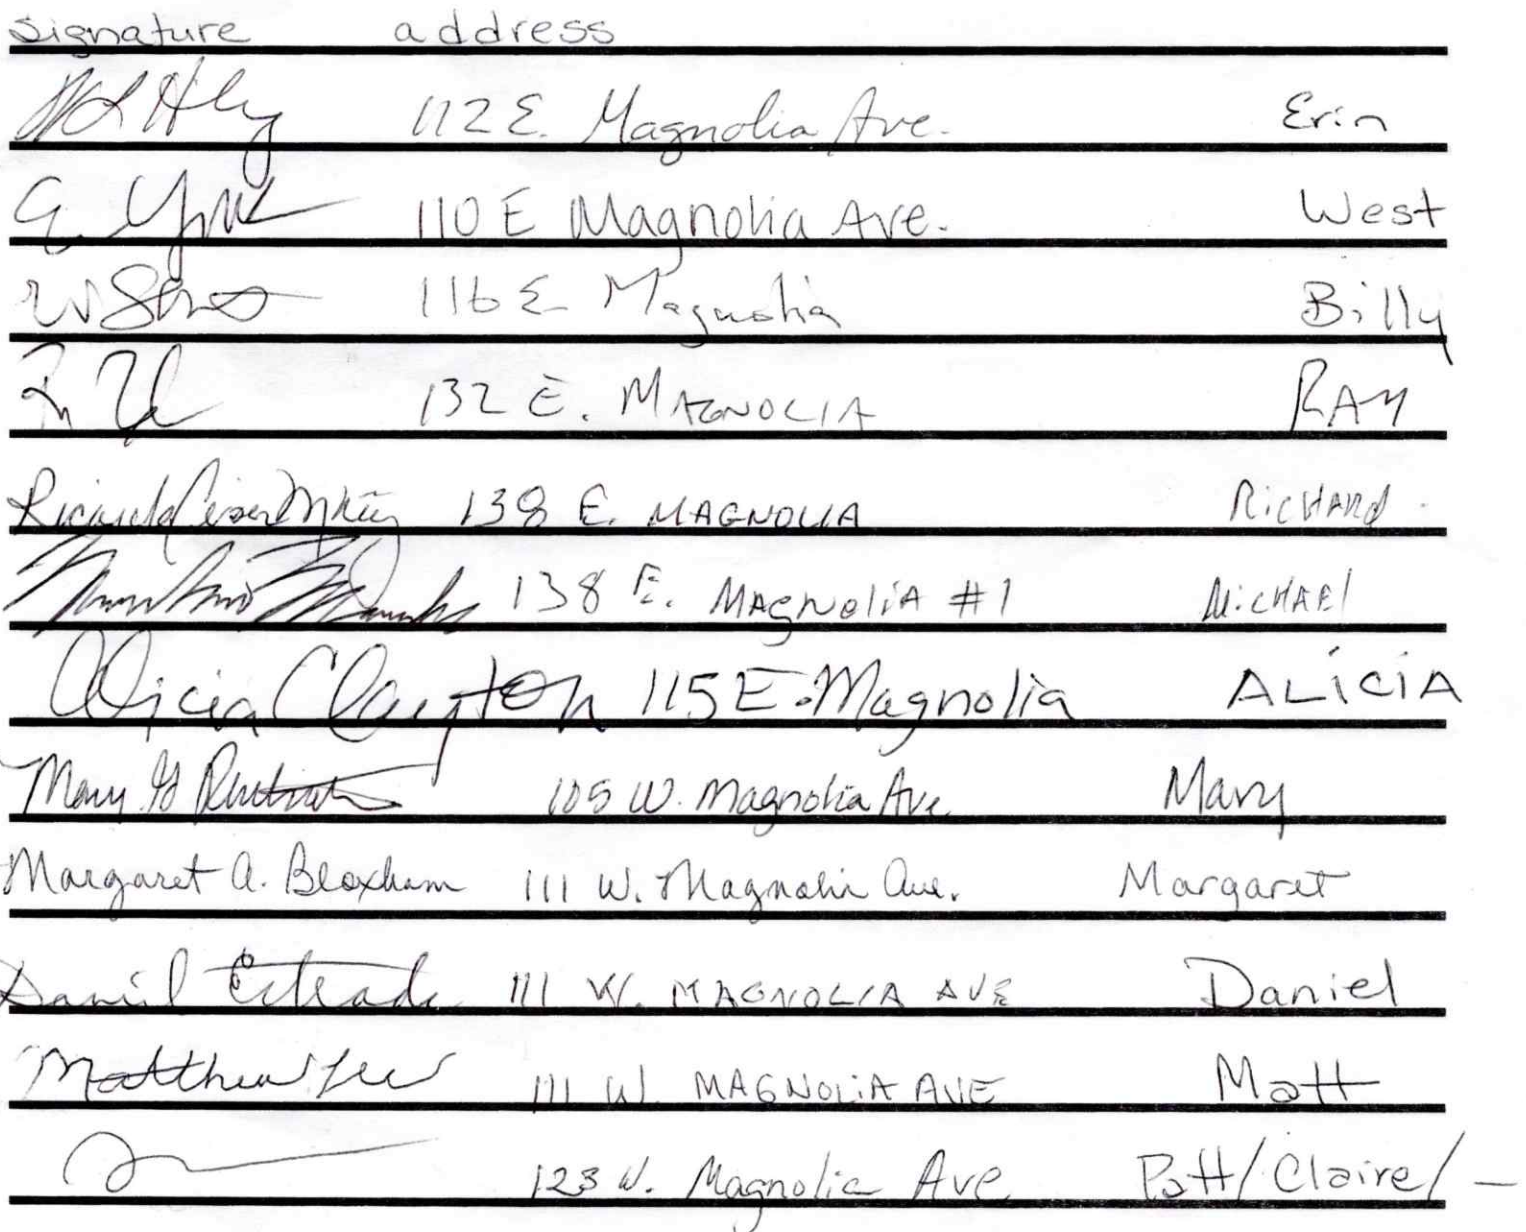 signature address
112 E. Magnolia Ave. Erin
110 E Magnolia Ave. West
116 E Magnolia Billy
132 E. MAGNOLIA RAY
138 E. MAGNOLIA RICHARD
138 E. MAGNOLIA #1 MICHAEl
Alicia Clayton 115 E. Magnolia ALICIA
Mary 105 W. Magnolia Ave. Mary
Margaret A. Bloxham 111 W. Magnolia Ave. Margaret
Daniel Estrada 111 W. MAGNOLIA AVE Daniel
Matthew Lee 111 W. MAGNOLIA AVE Matt
123 W. Magnolia Ave. Patt/Claire/ —